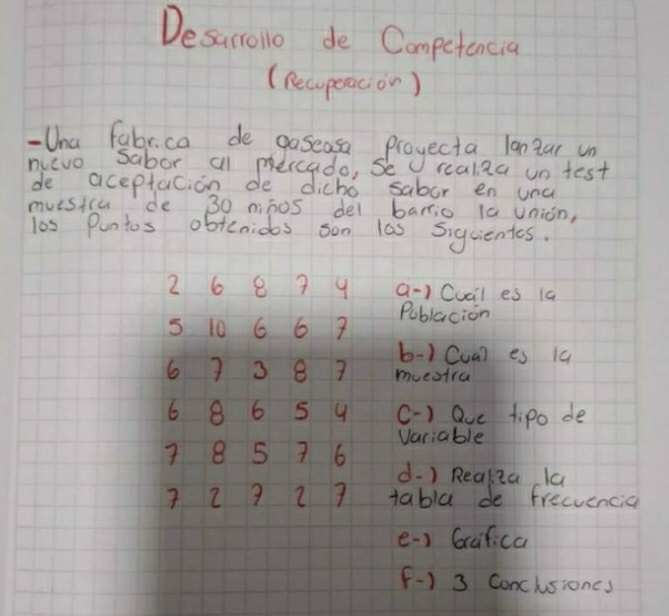 Desarrollo de Competencia
(Recuperación)
-Una fabrica de gaseosa proyecta lanzar un
nuevo sabor al mercado, se realiza un test
de aceptación de dicho sabor en una
muestra de 30 niños del barrio la unión,
los Puntos obtenidos son los siguientes.
2 6 8 7 4
5 10 6 6 7
6 7 3 8 7
6 8 6 5 4
7 8 5 7 6
7 2 7 2 7
a-) Cuál es la
Población
b-) Cual es la
muestra
C-) Que tipo de
Variable
d-) Realiza la
tabla de frecuencia
e-) Gráfica
f-) 3 Conclusiones